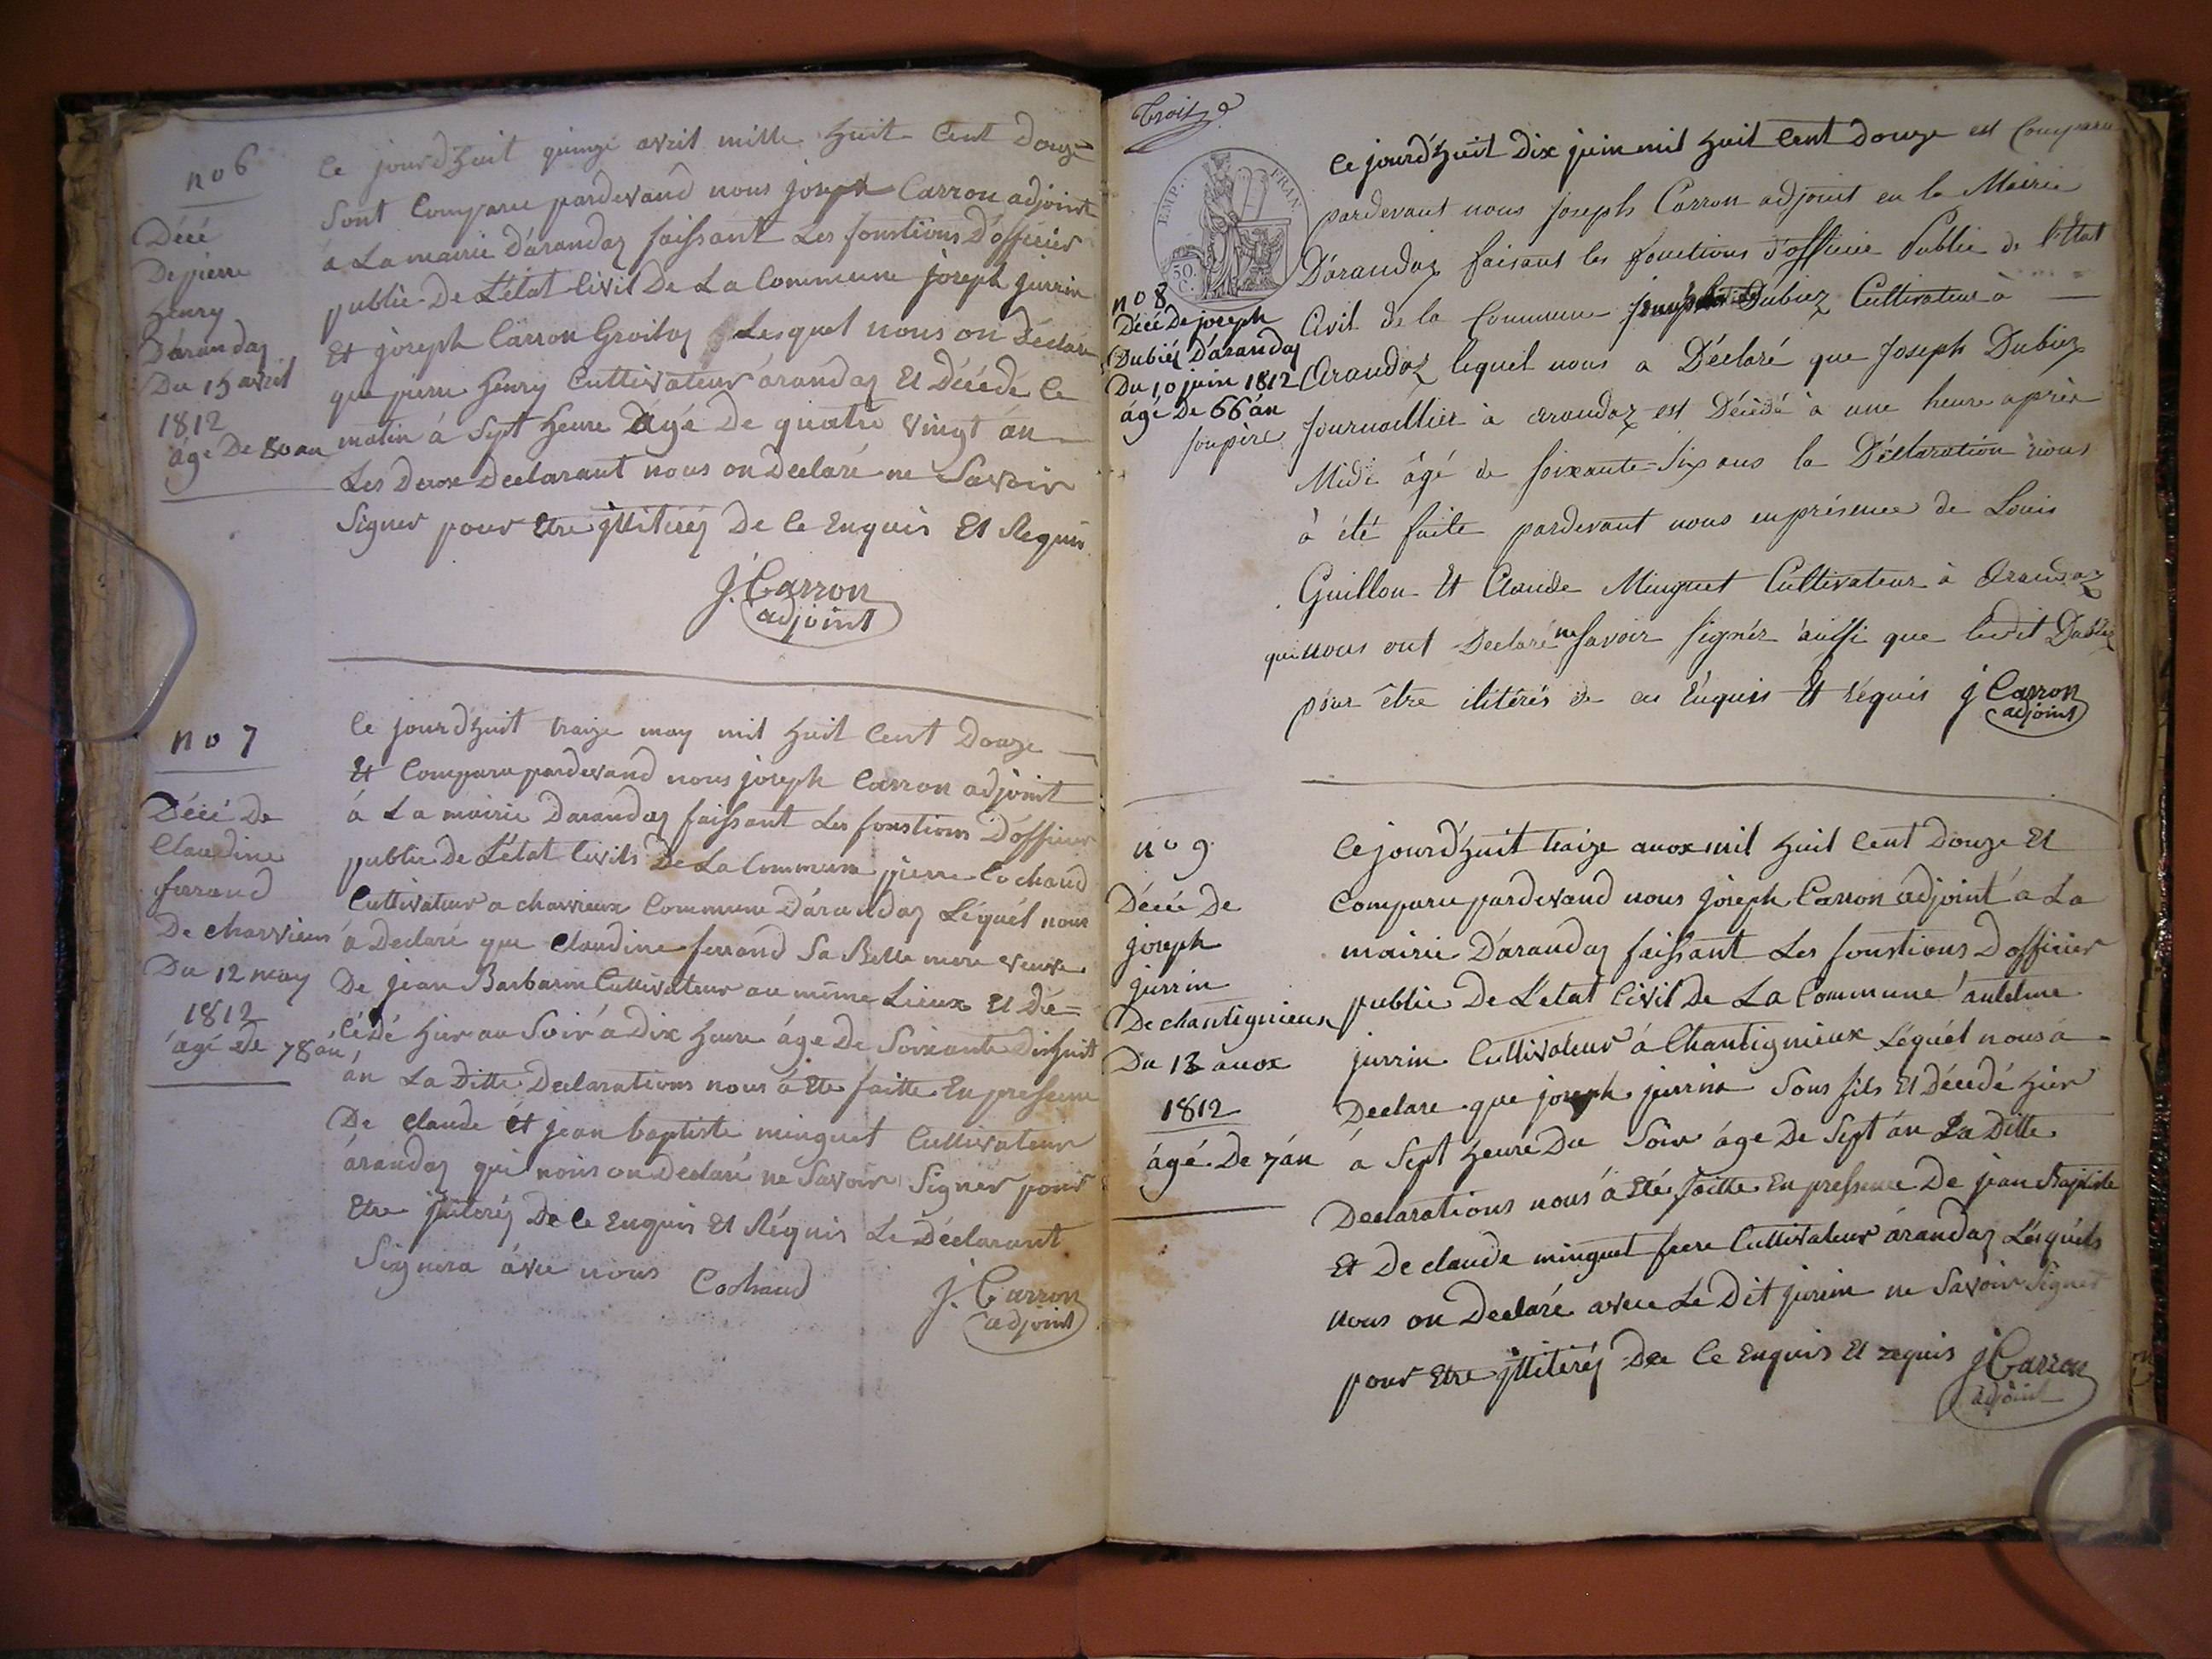 no 6
Décé
De pierre
henry
Darandaz
Du 15 avril
1812
âgé De 80 an
Ce jourd'huit quinze avril mille huit Cent Douze
Sont Comparu pardevand nous joseph Carron adjoint
à La mairie D'arandaz faissant Les fonstions D'officier
public De L'état Civil De La Commune joseph jurrin
Et joseph Carron Groitaz Lesquel nous on Déclare
que pierre henry Cultivateur arandaz Et Décédé Ce
matin à Sept heure Dâgé De quatre vingt ân
Les Deux Declarant nous on Declaré ne Savoir
Signer pour Etre jllitéréz De Ce Enquis Et Requis
J. Carron
adjoint
no 7
Décé De
Claudine
ferrand
De charvieux
Du 12 may
1812
âgé de 78 ân
Ce jourd'huit traize may mil huit Cent Douze
Et Comparu pardevand nous joseph Carron adjoint
à La mairie Darandaz faissant Les fonstions D'officier
public De L'état Civils De La Commune pierre Cochaud
Cultivateur a charvieux Commune D'arandaz Léquél nous
a Declaré que Claudine ferrand Sa Belle mere veuve
De jean Barbarin Cultivateur au même Lieux Et Dé=
cédé hier au Soir à Dix heure âge De Soixante Dixhuit
ân La Ditte Declarations nous à Ete faitte En pressence
De Claude et jean baptiste minguet Cultivateur
arandaz qui nous on Declaré ne Savoir Signer pour
Etre jlliteréz De Ce Enquis Et Réquis Le Déclarant
Signera avec nous Cochaud
J. Carron
adjoint
Trois
EMP. FRAN.
50.
C.
no 8
Décé De joseph
Dubiéz D'arandaz
Du 10 juin 1812
âgé De 66 ân
son père
Ce jourd'huit Dix juin mil huit Cent Douze est Comparu
pardevant nous Joseph Carron adjoint en la Mairie
D'arandaz faisant les fonctions d'officier Public de l'Etat
Civil de la Commune Dubiez Cultivateur à
Arandaz lequel nous a Déclaré que Joseph Dubiez
Journaillier à arandaz est Décédé à une heure après
Midi âgé de soixante-six ans la Déclaration nous
à été faite pardevant nous en présence de Louis
Guillon Et Claude Minguet Cultivateur à Arandaz
qui nous ont Declaré ne savoir signér aussi que ledit Dubiez
pour être ilitérés de ce Enquis Et Réquis j Carron
adjoint
no 9
Décé De
joseph
jurrin
De chantignieux
Du 13 auox
1812
âgé De 7 ân
Ce jourd'huit traize auox mil huit Cent Douze Et
Comparu pardevand nous joseph Carron adjoint à La
mairie D'arandaz faissant Les fonstions D'officier
public De L'etat Civil De La Commune antelme
jurrin Cultivateur à Chantignieux Léquél nous à
Declare que joseph jurrin Sons fils Et Décedé hier
à Sept heure Du Soir âge De Sept ân La Ditte
Declarations nous à Eté faitte En pressence De jean Baptiste
Et De claude minguet frere Cultivateur arandaz Lésquéls
nous on Declaré avec Le Dit jurrin ne Savoir Signer
pour Etre jlliteréz De Ce Enquis Et requis J Carron
adjoint